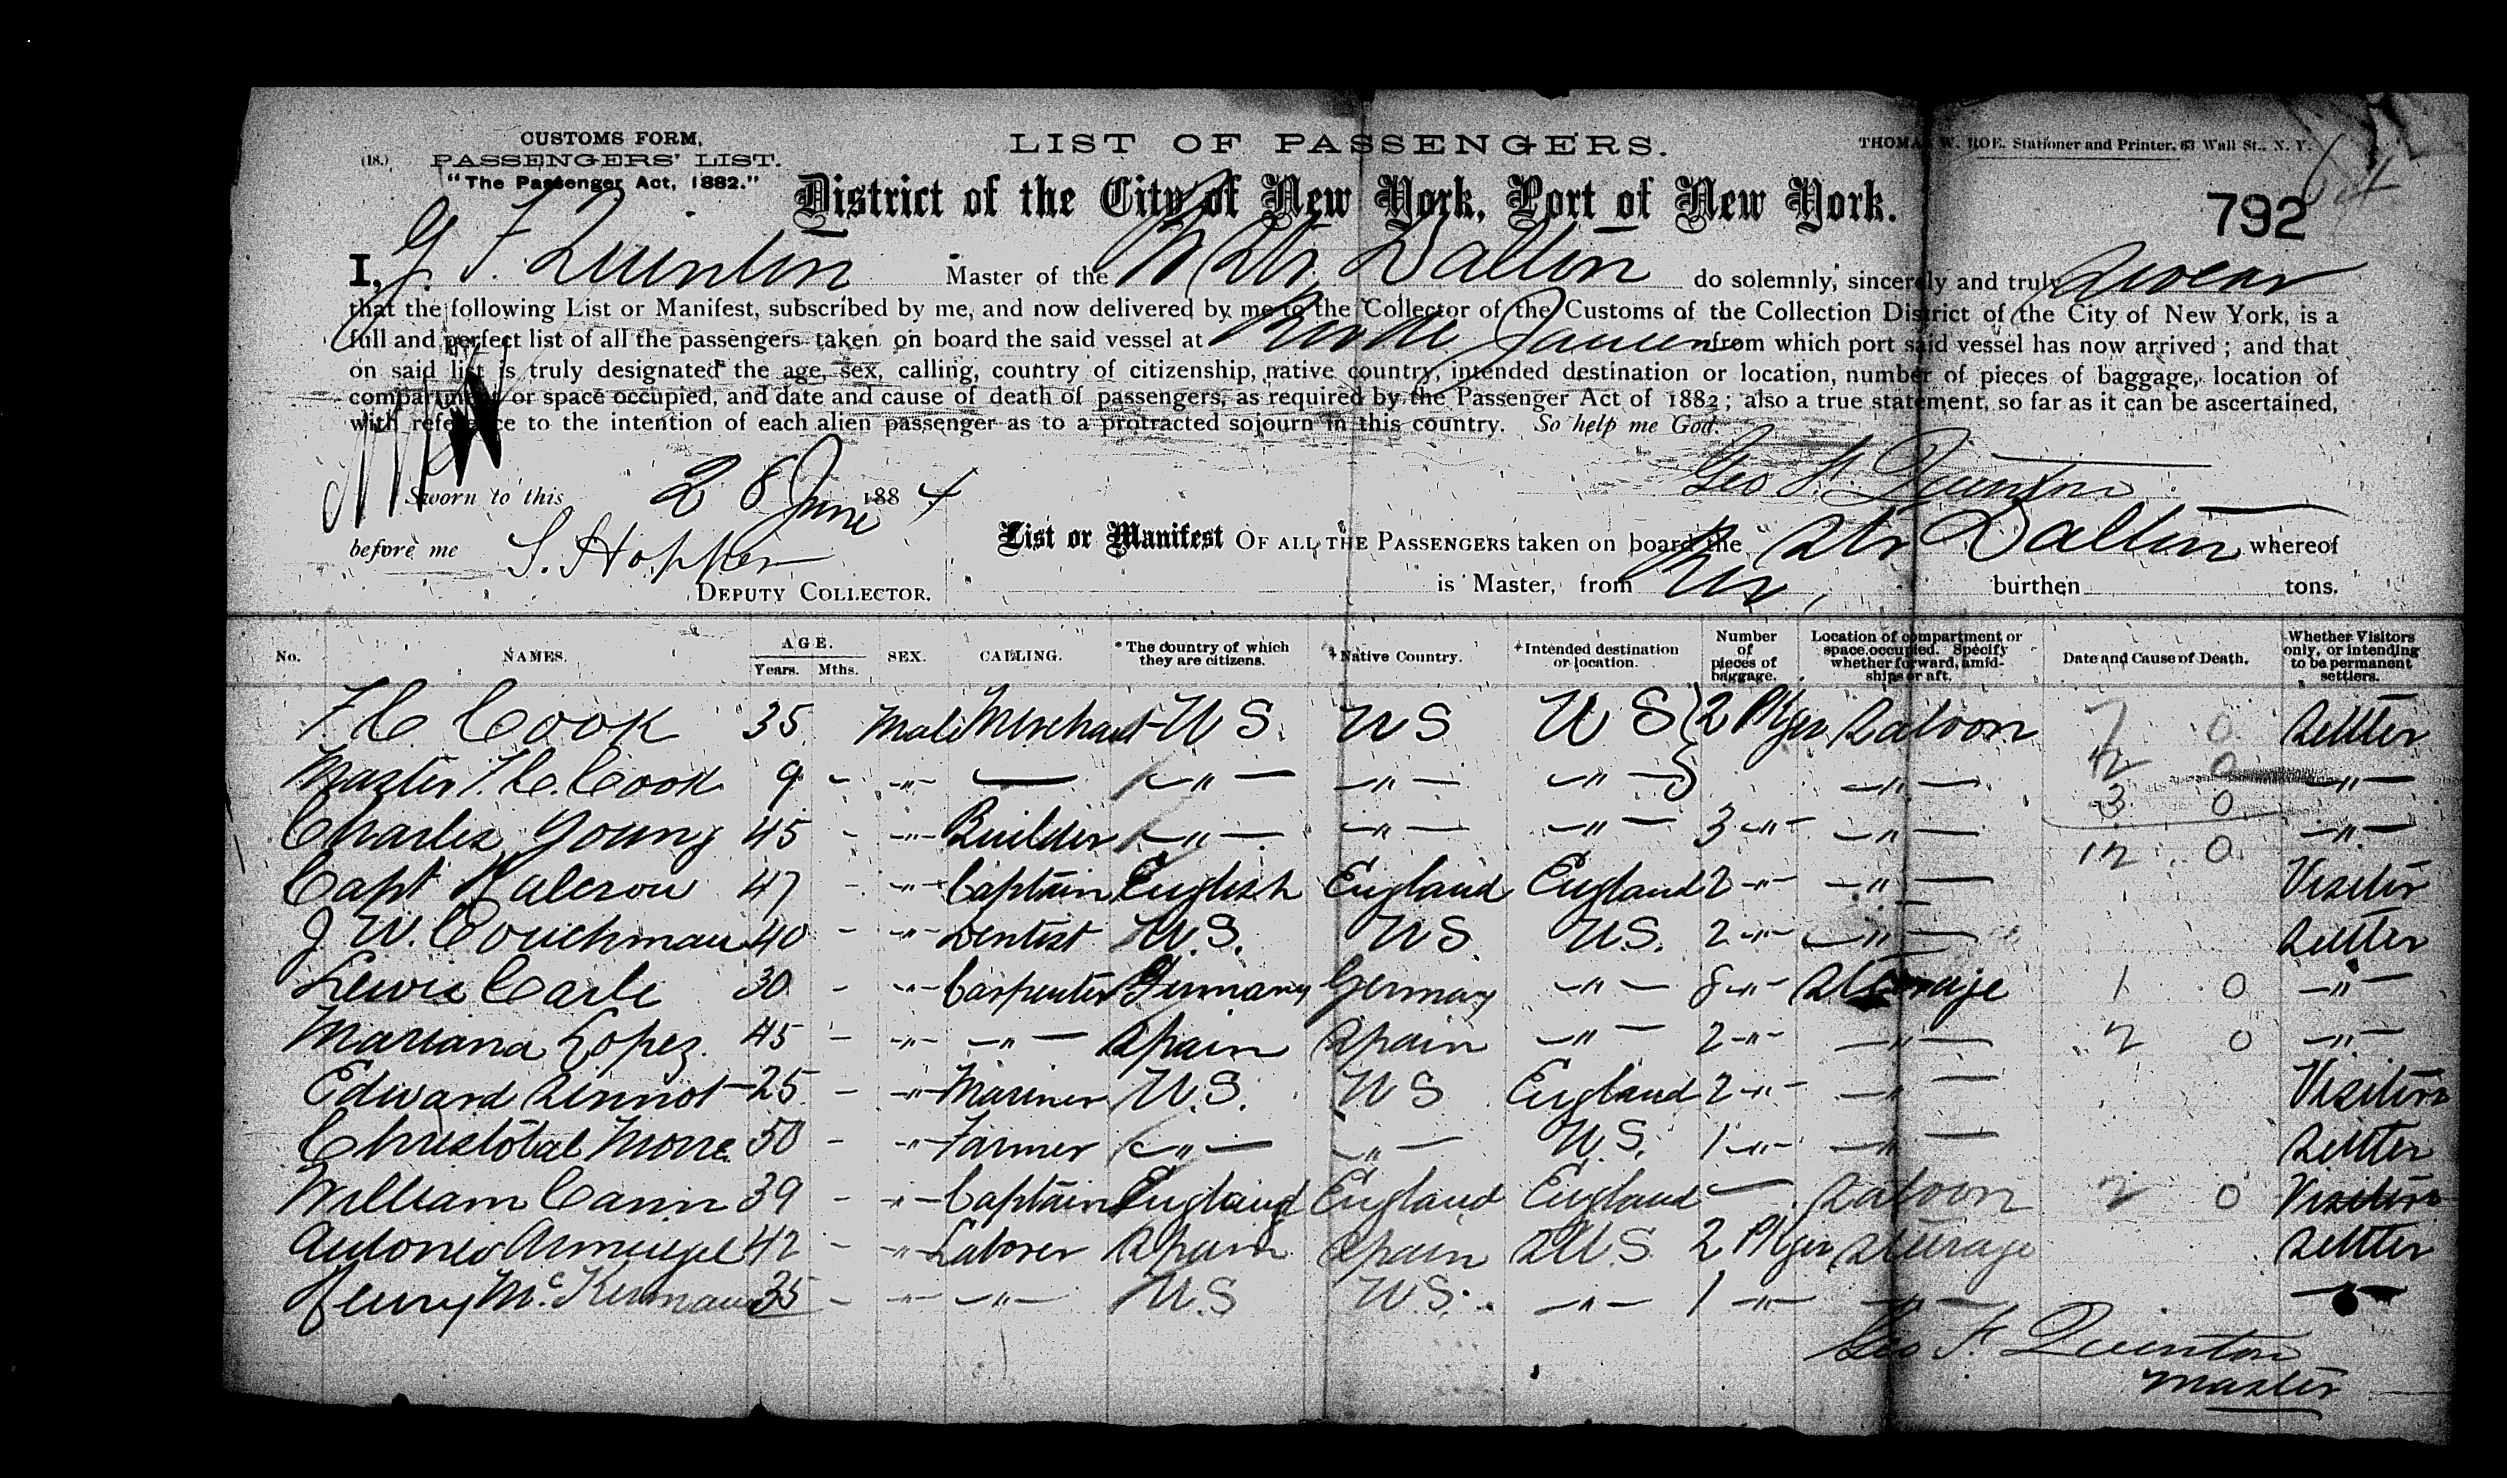 CUSTOMS FORM,
(18.) PASSENGERS' LIST.
"The Passenger Act, 1882."
LIST OF PASSENGERS.
THOMAS W. ROE, Stationer and Printer, 63 Wall St., N. Y.
District of the City of New York, Port of New York.
792
I, G. F. Quinton Master of the Str Dalton do solemnly, sincerely and truly swear
that the following List or Manifest, subscribed by me, and now delivered by me to the Collector of the Customs of the Collection District of the City of New York, is a
full and perfect list of all the passengers taken on board the said vessel at Rio de Janeiro from which port said vessel has now arrived; and that
on said list is truly designated the age, sex, calling, country of citizenship, native country, intended destination or location, number of pieces of baggage, location of
compartment or space occupied, and date and cause of death of passengers, as required by the Passenger Act of 1882; also a true statement, so far as it can be ascertained,
with reference to the intention of each alien passenger as to a protracted sojourn in this country. So help me God.
Geo F. Quinton
Sworn to this 28 June 1884
before me S. Hopper
DEPUTY COLLECTOR.
List or Manifest OF ALL THE PASSENGERS taken on board the Str Dalton whereof
is Master, from Rio, burthen tons.
No. NAMES. AGE. Years. Mths. SEX. CALLING. * The country of which they are citizens. + Native Country. + Intended destination or location. Number of pieces of baggage. Location of compartment or space occupied. Specify whether forward, amid-ships or aft. Date and Cause of Death. Whether Visitors only, or intending to be permanent settlers.
F C Cook 35 Male Merchant U S. U S U S 2 Pkgs Saloon 7 0 Settler
Master F. C. Cook 9 - " - — " — " — " — " — 12 0 — " —
Charles Young 45 - " - Builder — " — " — " — 3 " — " — 3 0 — " —
Capt Halcrow 47 - " - Captain English England England 2 " — " — 12 0 Visitor
J W. Couchman 40 - " - Dentist U.S. U S U.S. 2 " — " — Settler
Lewis Carle 30 - " - Carpenter Germany Germany — " — 8 " Steerage 1 0 — " —
Mariana Lopez. 45 - " - — " — Spain Spain — " — 2 " — " — 2 0 — " —
Edward Sinnot 25 - " - Mariner U.S. U S England 2 " — " — Visitors
Christobal Morre. 50 - " - Farmer — " — " — U.S. 1 " — " — Settler
William Cann 39 - " - Captain England England England — Saloon 2 0 Visitors
Antonio 42 - " - Laborer Spain Spain U.S. 2 Pkgs Steerage Settler
Henry Mc Kernan 35 - " - — " — U.S U.S. — " — 1 " — " — " —
Geo F. Quinton
Master